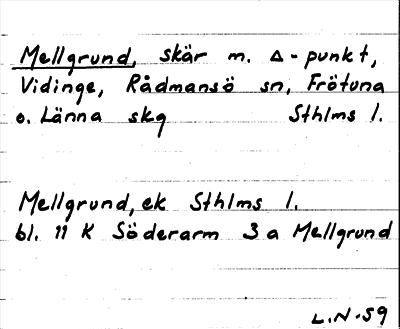 Mellgrund, skär m. Δ-punkt,
Vidinge, Rådmansö sn, Frötuna
o. Länna skg Sthlms l.
Mellgrund, ek Sthlms l.
bl. 11 K Söderarm 3 a Mellgrund
L.N-59